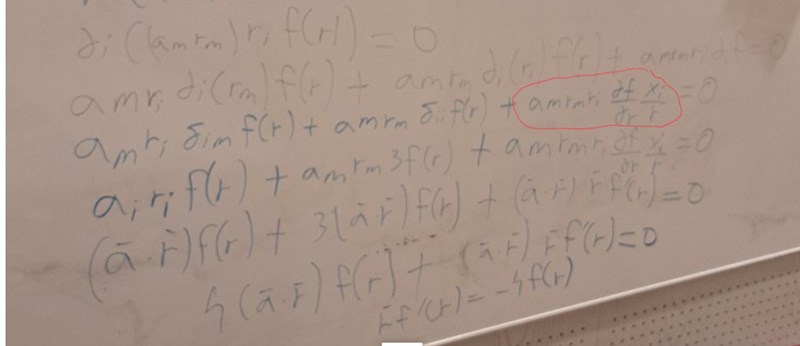 ∂i((amrm)ri f(r)) = 0
amri ∂i(rm)f(r) + amrm ∂i(ri)f(r) + amrmri ∂if = 0
amri δim f(r) + amrm δii f(r) + amrmri ∂f/∂r xi/r = 0
airi f(r) + amrm 3f(r) + amrmri ∂f/∂r xi/r = 0
(ā·r̄)f(r) + 3(ā·r̄)f(r) + (ā·r̄) r̄ f'(r) = 0
4(ā·r̄) f(r) + (ā·r̄) r̄f'(r) = 0
r̄f'(r) = -4f(r)